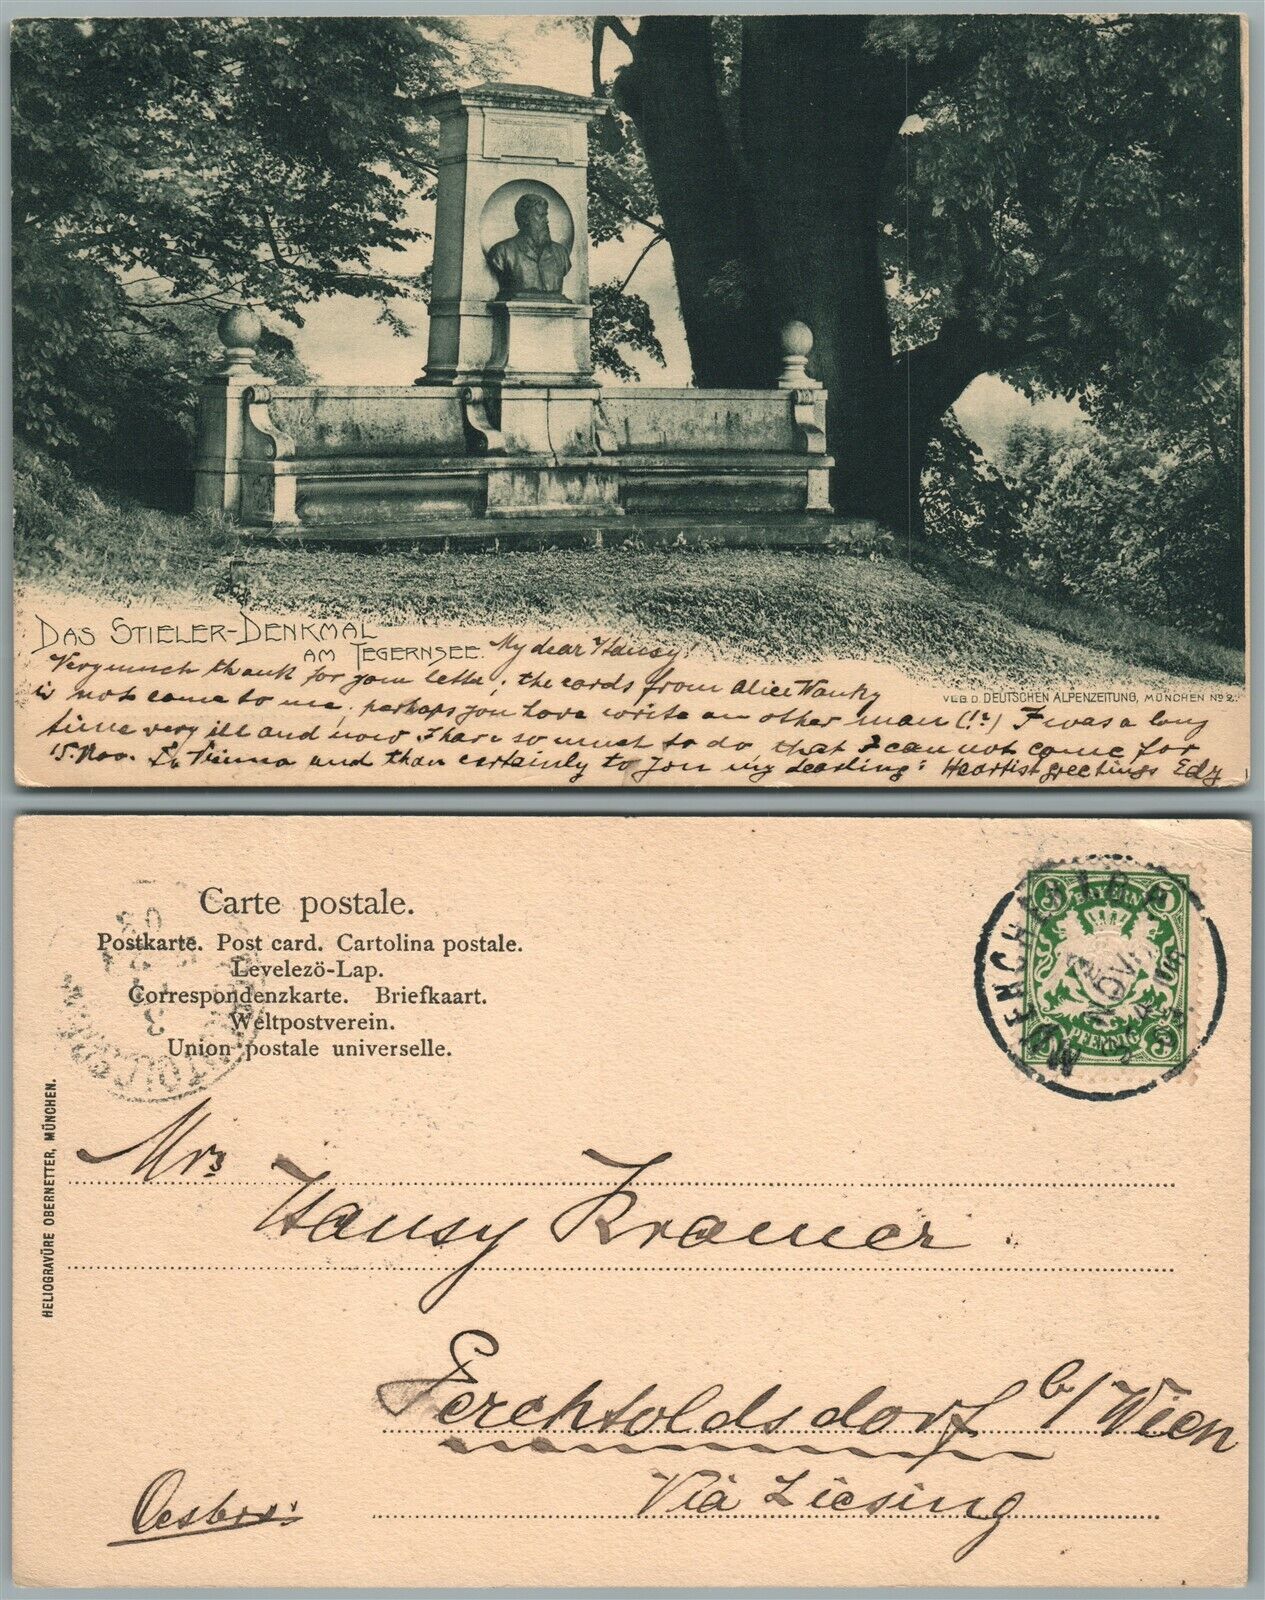 DAS STIELER-DENKMAL
AM TEGERNSEE.
My dear Hansy!
Very much thank for jour letter; the cards from Alice Wanky
is not came to me, perhaps you have write an other man (!?) I was a long
time very ill and now I hare so much to do, that I can not come for
15. Nov. to Vienna and than certainly to Jou my dearling! Heartist greetings Edy
VLG. D. DEUTSCHEN ALPENZEITUNG, MÜNCHEN No 2.
Carte postale.
Postkarte. Post card. Cartolina postale.
Levelezö-Lap.
Correspondenzkarte. Briefkaart.
Weltpostverein.
Union postale universelle.
HELIOGRAVÜRE OBERNETTER, MÜNCHEN.
MUENCHEN
NOV
BAYERN
5 5
PFENNIG
Mrs
Hansy Kramer.
Perchtoldsdorf b/Wien
Via Liesing
Oesterr: